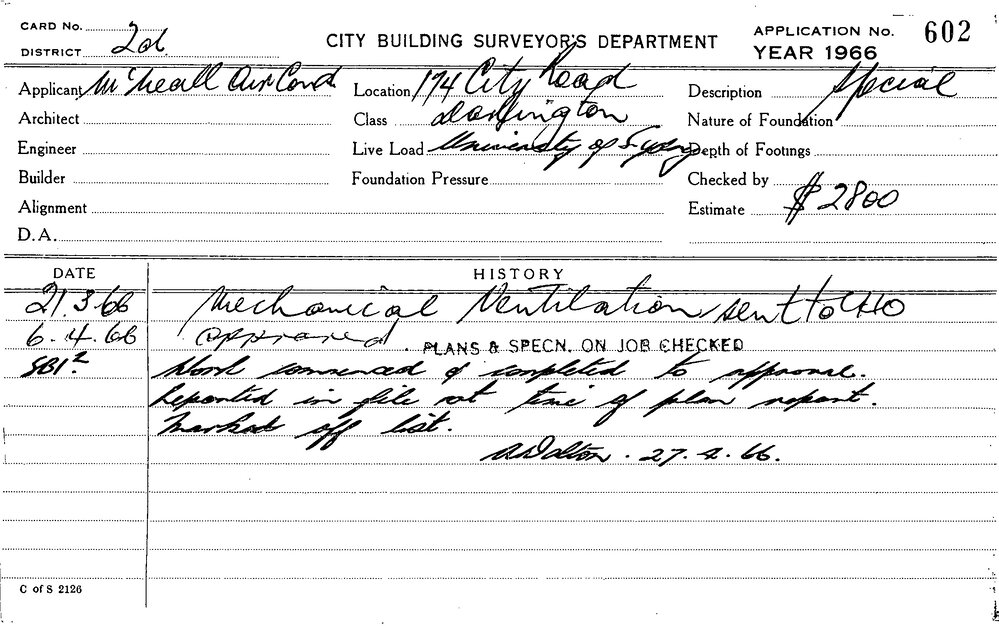 CARD No.
DISTRICT 2d
CITY BUILDING SURVEYOR'S DEPARTMENT
APPLICATION No. 602
YEAR 1966
Applicant McNeall Air Cond
Location 174 City Road
Description Special
Architect
Class Darlington
Nature of Foundation
Engineer
Live Load University of Sydney
Depth of Footings
Builder
Foundation Pressure
Checked by
Alignment
Estimate $2800
D.A.
DATE HISTORY
21.3.66 Mechanical Ventilation sent to CHO
6.4.66 approved. PLANS & SPECN. ON JOB CHECKED
Work commenced & completed to approval.
Reported in file at time of plan report.
Marked off list.
A Dalton. 27.4.66.
C of S 2126